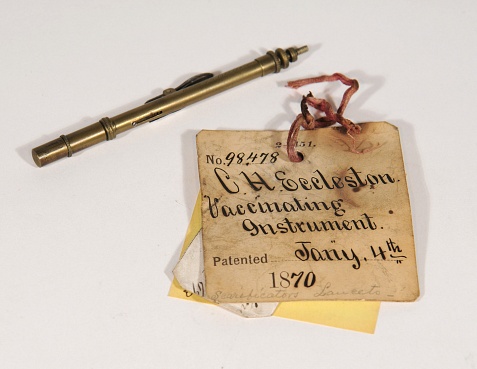 No. 98478
C. H. Eccleston.
Vaccinating
Instrument.
Patented Jany. 4th
1870
Scarificators Lancet